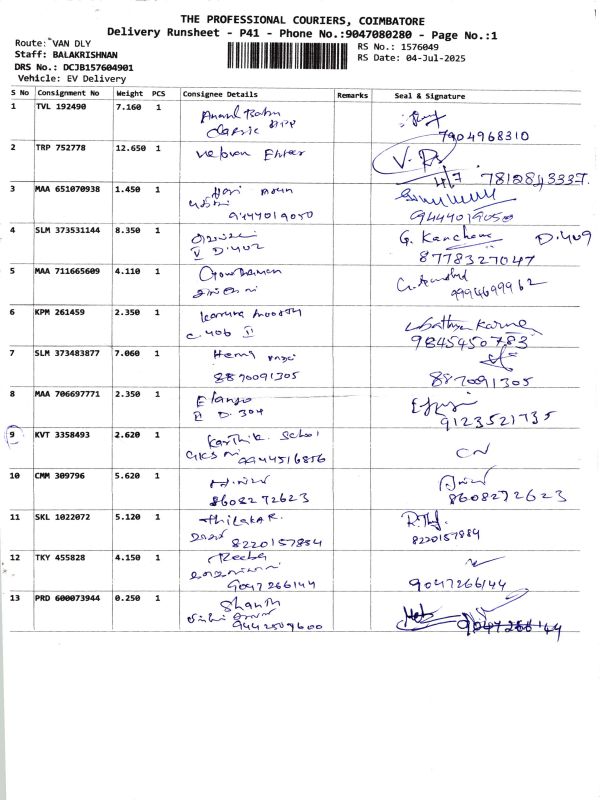 THE PROFESSIONAL COURIERS, COIMBATORE
Delivery Runsheet - P41 - Phone No.:9047080280 - Page No.:1
Route: VAN DLY
Staff: BALAKRISHNAN
DRS No.: DCJB157604901
Vehicle: EV Delivery
RS No.: 1576049
RS Date: 04-Jul-2025
S No Consignment No Weight PCS Consignee Details Remarks Seal & Signature
1 TVL 192490 7.160 1 Anand Babu
classic app
7904968310
2 TRP 752778 12.650 1
V. Rs
4/7 7812843337.
3 MAA 651070938 1.450 1 Hari
9444019050
9444019050
4 SLM 373531144 8.350 1
V D.402
G. Kanchana D.409
8778327047
5 MAA 711665609 4.110 1 Gowthaman
9994699962
6 KPM 261459 2.350 1 Karuna Moorthy
C. 406 II
Sathya Karuna
9845450783
7 SLM 373483877 7.060 1
8870091305
8870091305
8 MAA 706697771 2.350 1 Elango
II D. 304
9123521735
9 KVT 3358493 2.620 1 Karthik. School
9944516856
CN
10 CMM 309796 5.620 1
8608272623
8608272623
11 SKL 1022072 5.120 1 Thilaka R.
8220157884
8220157884
12 TKY 455828 4.150 1 Reeba
9047266144
9047266144
13 PRD 600073944 0.250 1 Shanth
9442509600
9047266144